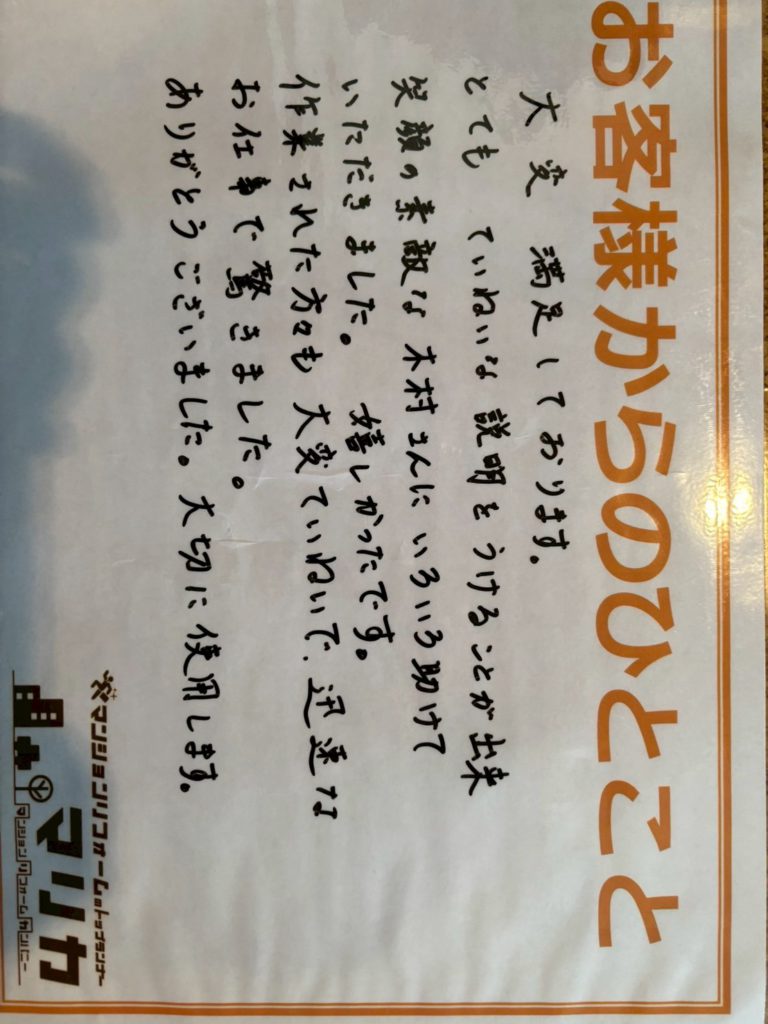 お客様からのひとこと
大変満足しております。
とても ていねいな説明をうけることが出来
笑顔の素敵な木村さんにいろいろ助けて
いただきました。 嬉しかったです。
作業された方々も大変ていねいで、迅速な
お仕事で驚きました。
ありがとうございました。大切に使用します。
マンションリフォームのトップランナー
マリカ
マンションリフォームカンパニー